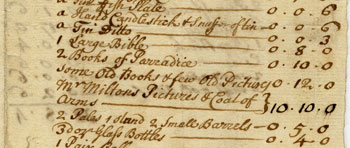 a Tin Fish Plate 0 . 0 . 6
a Hand Candlestick & Snuf of tin 0 . 0 . 6
a Tin Ditto 0 . 0 . 3
1 Large Bible 0 . 8 . 0
2 Books of Parradice 0 . 10 . 0
Some Old Books & few Old Pictures 0 . 12 . 0
Mr Miltons Pictures & Coat of
Arms 10 . 10 . 0
2 Pails 1 stand 2 Small Barrels 0 . 5 . 0
Glass Bottles 0 . 4 . 0
1 Pair